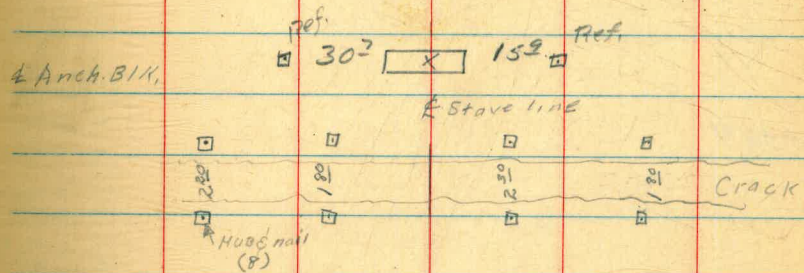 Ref. Ref.
30² X 15⁹
℄ Anch. Blk.
℄ Stave line
2⁸⁰ 1⁸⁰ 2³⁰ 1⁸⁰ Crack
Hub & nail
(8)